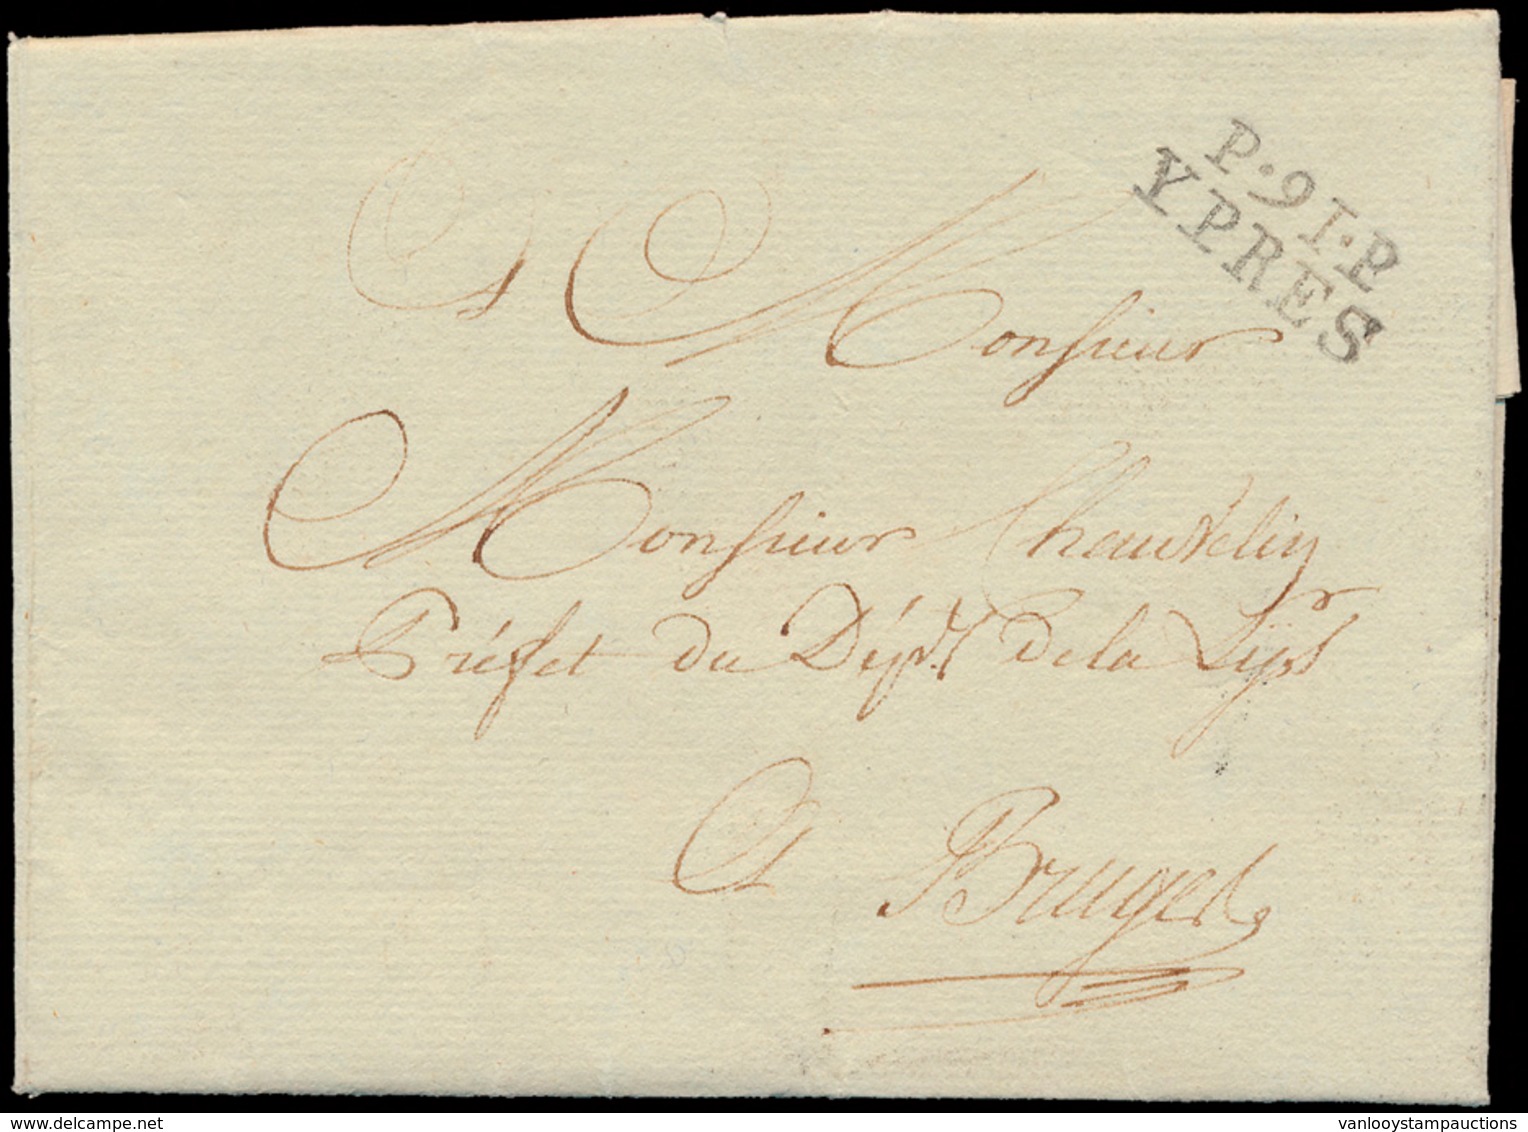 P.91.P.
YPRES
A Monsieur
Monsieur Chauvelin
Préfet du Dép.t de la Lijs
A Bruges
delcampe.net
vanlooystampauctions